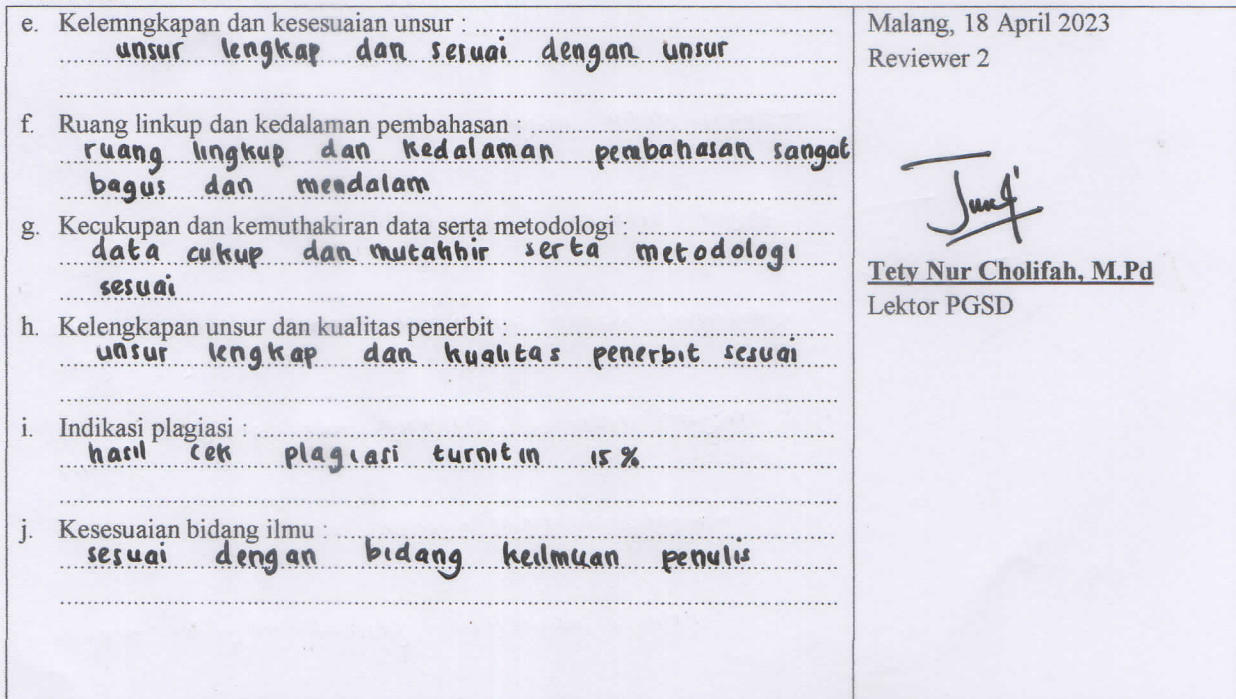 e. Kelemngkapan dan kesesuaian unsur : ..........
unsur lengkap dan sesuai dengan unsur
f. Ruang linkup dan kedalaman pembahasan : ..........
ruang lingkup dan kedalaman pembahasan sangat
bagus dan mendalam
g. Kecukupan dan kemuthakiran data serta metodologi : ..........
data cukup dan mutakhir serta metodologi
sesuai
h. Kelengkapan unsur dan kualitas penerbit : ..........
unsur lengkap dan kualitas penerbit sesuai
i. Indikasi plagiasi : ..........
hasil cek plagiasi turnitin 15 %
j. Kesesuaian bidang ilmu : ..........
sesuai dengan bidang keilmuan penulis
Malang, 18 April 2023
Reviewer 2
Tety Nur Cholifah, M.Pd
Lektor PGSD